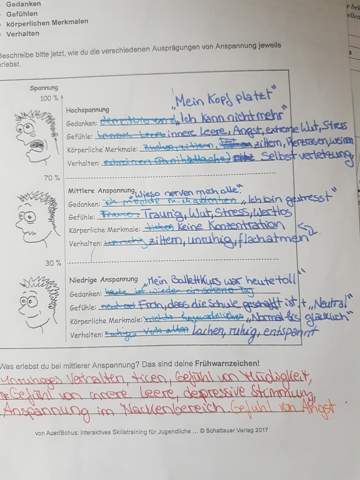 Gedanken
Gefühlen
körperlichen Merkmalen
Verhalten
Beschreibe bitte jetzt, wie du die verschiedenen Ausprägungen von Anspannung jeweils
erlebst.
Spannung
100 %
Hochspannung „Mein Kopf platzt"
Gedanken: „Ich kann nicht mehr"
Gefühle: innere Leere, Angst, extreme Wut, Stress
Körperliche Merkmale: zittern, Herzrasen, weinen
Verhalten: Selbstverletzung
70 %
Mittlere Anspannung „Wieso nerven mich alle"
Gedanken: „Ich bin gestresst"
Gefühle: Traurig, Wut, Stress, Wertlos
Körperliche Merkmale: Keine Konzentration
Verhalten: zittern, unruhig, flach atmen
30 %
Niedrige Anspannung „Mein Ballettkurs war heute toll"
Gedanken:
Gefühle: Froh, dass die Schule geschafft ist, „Neutral"
Körperliche Merkmale: „Normal bis glücklich"
Verhalten: lachen, ruhig, entspannt
Was erlebst du bei mittlerer Anspannung? Das sind deine Frühwarnzeichen!
Unruhiges Verhalten, ticen, Gefühl von Müdigkeit,
Gefühl von innere Leere, depressive Stimmung,
Anspannung im Nackenbereich Gefühl von Angst
von Auer/Bohus: Interaktives Skillstraining für Jugendliche ... © Schattauer Verlag 2017